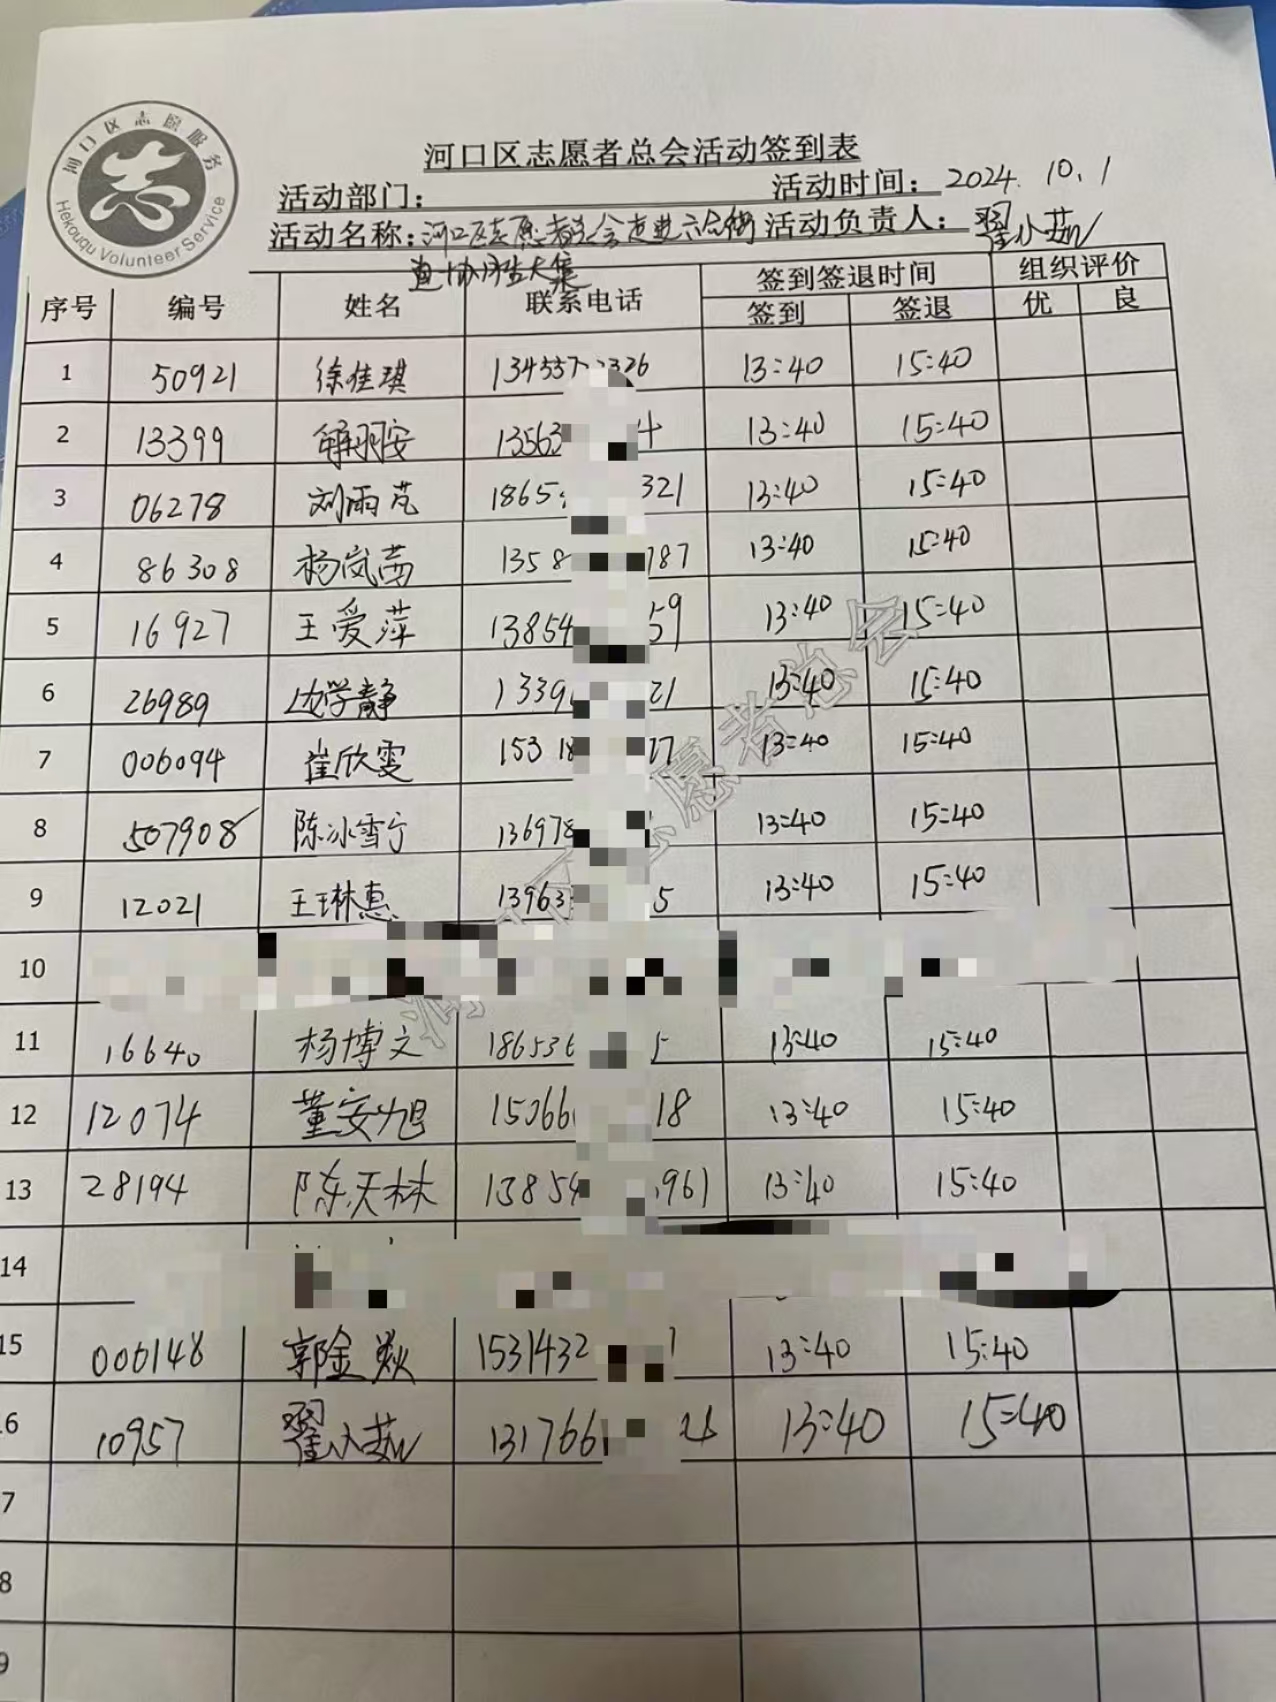 河口区志愿服务
Hekouqu Volunteer Service
河口区志愿者总会活动签到表
活动部门： 活动时间：2024.10.1
活动名称：河口区志愿者总会走进六合街 活动负责人：翟小燕
道协济生大集
序号 编号 姓名 联系电话 签到签退时间 组织评价
签到 签退 优 良
1 50921 徐佳琪 13:40 15:40
2 13399 羽安 13563 4 13:40 15:40
3 06278 刘雨芃 1865 321 13:40 15:40
4 86308 杨岚茜 1358 787 13:40 15:40
5 16927 王爱萍 13854 59 13:40 15:40
6 26989 边学静 1339 21 13:40 15:40
7 006094 崔欣雯 15318 77 13:40 15:40
8 507908 陈冰雪宁 136978 13:40 15:40
9 12021 王琳惠 13963 5 13:40 15:40
10
11 16640 杨博文 186536 5 13:40 15:40
12 12074 董安旭 15066 18 13:40 15:40
13 28194 陈天林 13854 961 13:40 15:40
14
15 006148 郭金燚 1531432 13:40 15:40
6 10957 翟小燕 131766 13:40 15:40
7
8
9
愿者总会